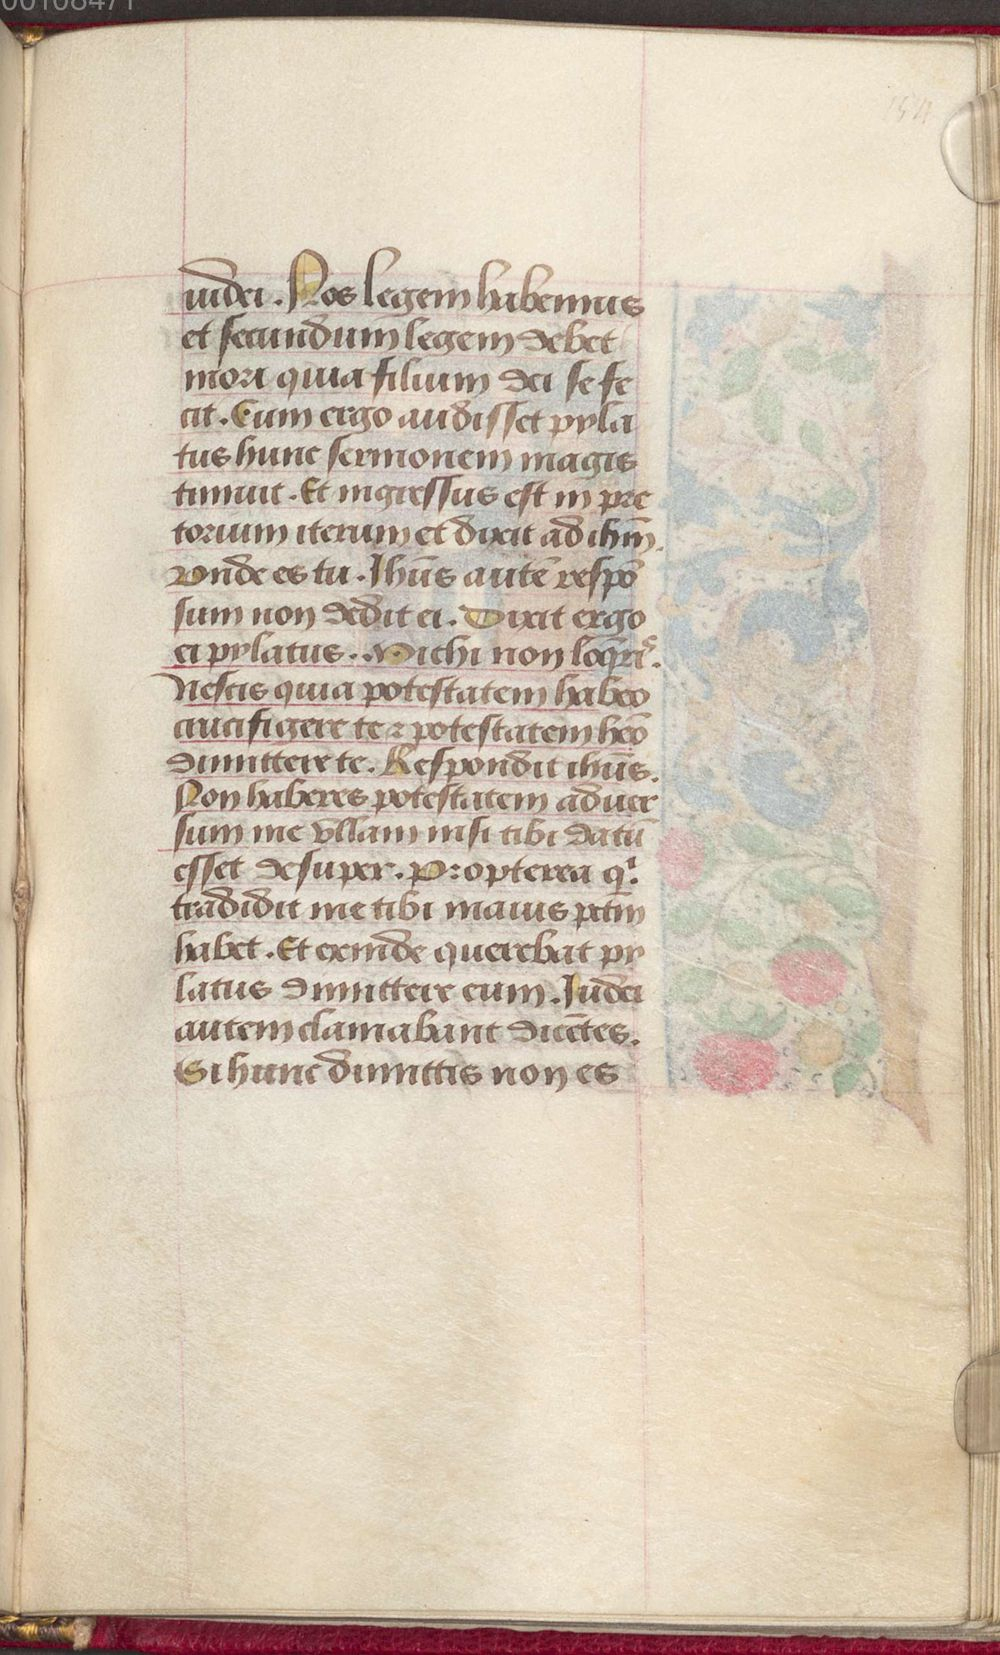 00108471
154
iudei. Nos legem habemus
et secundum legem debet
mori quia filium dei se fe
cit. Cum ergo audisset pyla
tus hunc sermonem magis
timuit. Et ingressus est in pre
torium iterum et dixit ad ihm̄.
vnde es tu. Jhūs autē respō
sum non dedit ei. Dixit ergo
ei pylatus. Michi non loq̄ris.
Nescis quia potestatem habeo
crucifigere te ⁊ potestatem hēo
dimittere te. Respondit ihūs.
Non haberes potestatem aduer
sum me vllam nisi tibi datū
esset desuper. Propterea qⁱ
tradidit me tibi maius pctm̄
habet. Et exinde querebat py
latus dimittere eum. Judei
autem clamabant dicētes.
Si hunc dimittis non es